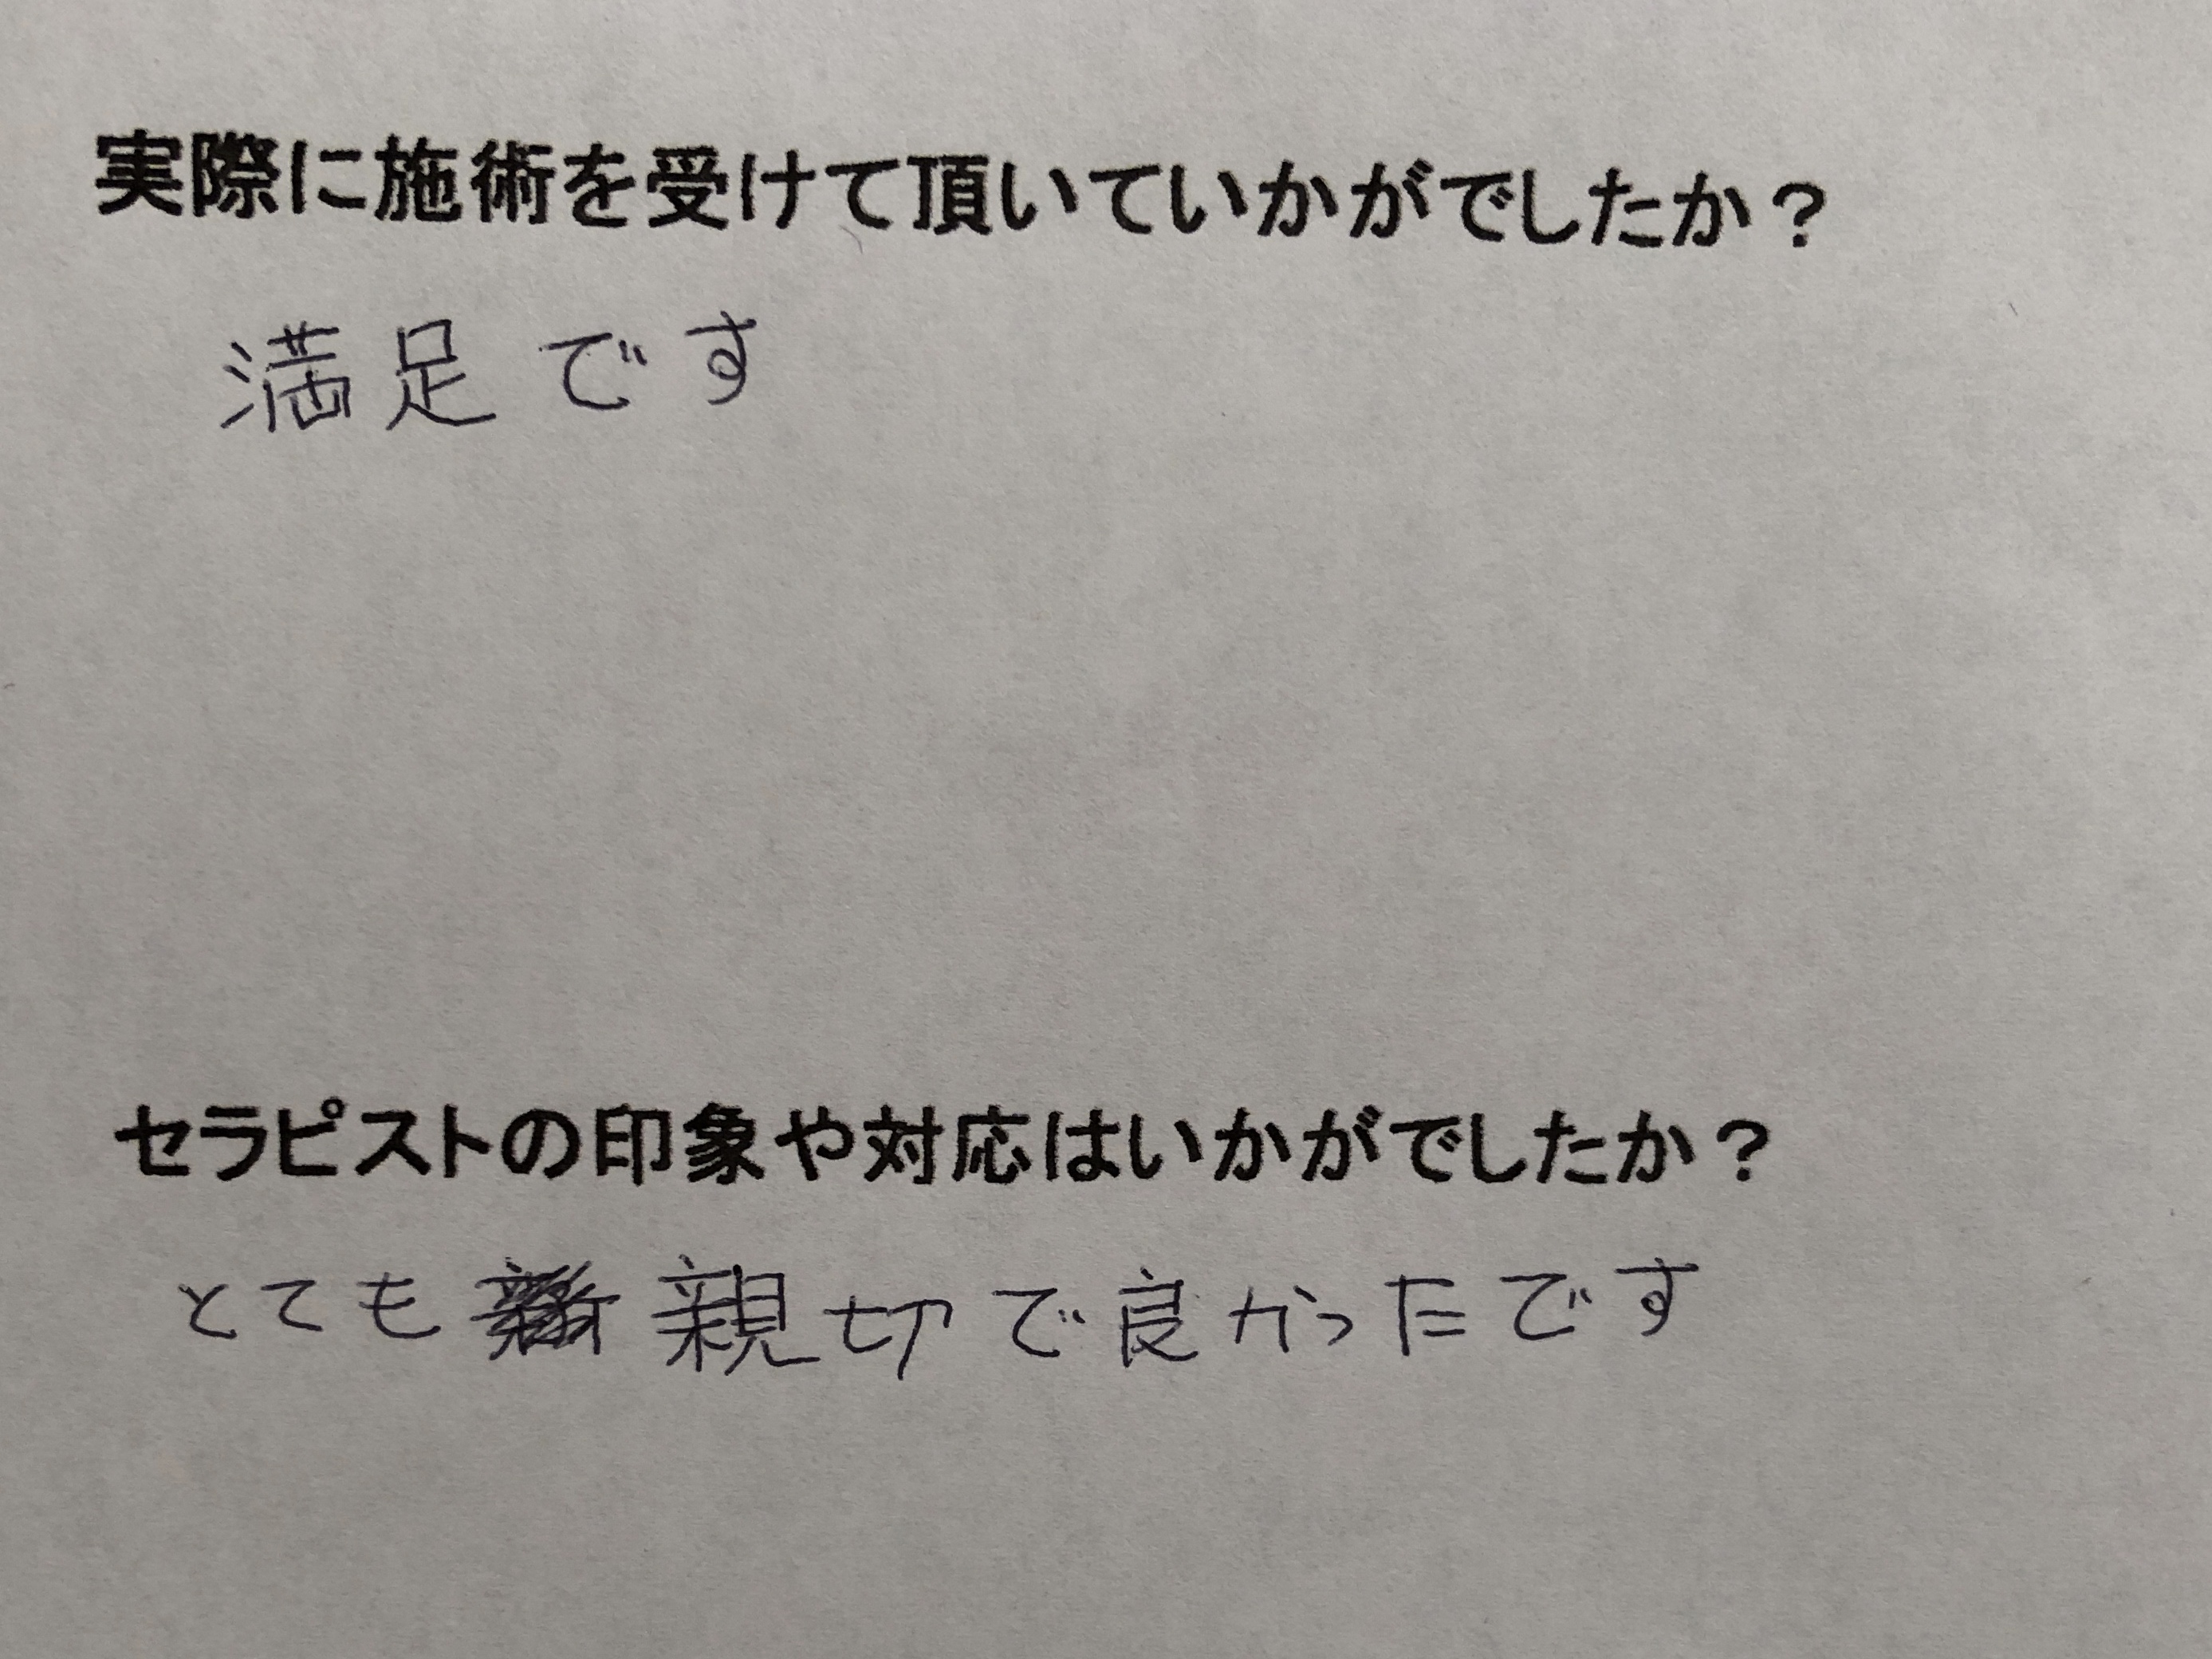 実際に施術を受けて頂いていかがでしたか？
満足です
セラピストの印象や対応はいかがでしたか？
とても親切で良かったです